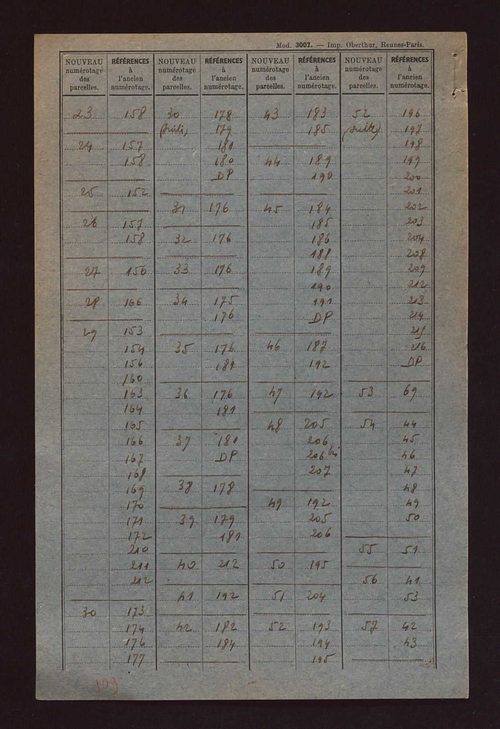 Mod. 3007. — Imp. Oberthur, Rennes-Paris.
NOUVEAU numérotage des parcelles.
RÉFÉRENCES à l'ancien numérotage.
NOUVEAU numérotage des parcelles.
RÉFÉRENCES à l'ancien numérotage.
NOUVEAU numérotage des parcelles.
RÉFÉRENCES à l'ancien numérotage.
NOUVEAU numérotage des parcelles.
RÉFÉRENCES à l'ancien numérotage.
23 158
24 157
158
25 152
26 157
158
27 150
28 166
29 153
154
156
160
163
164
165
166
167
168
169
170
171
172
210
211
212
30 173
174
176
177
30 178
(suite) 179
181
180
DP
31 176
32 176
33 176
34 175
176
35 176
181
36 176
181
37 180
DP
38 178
39 179
181
40 212
41 192
42 182
184
43 183
185
44 189
190
45 184
185
186
188
189
190
191
DP
46 187
192
47 192
48 205
206
206 bis
207
49 192
205
206
50 195
51 204
52 193
194
195
52 196
(suite) 197
198
199
200
201
202
203
204
208
209
212
213
214
215
216
DP
53 69
54 44
45
46
47
48
49
50
55 51
56 41
53
57 42
43